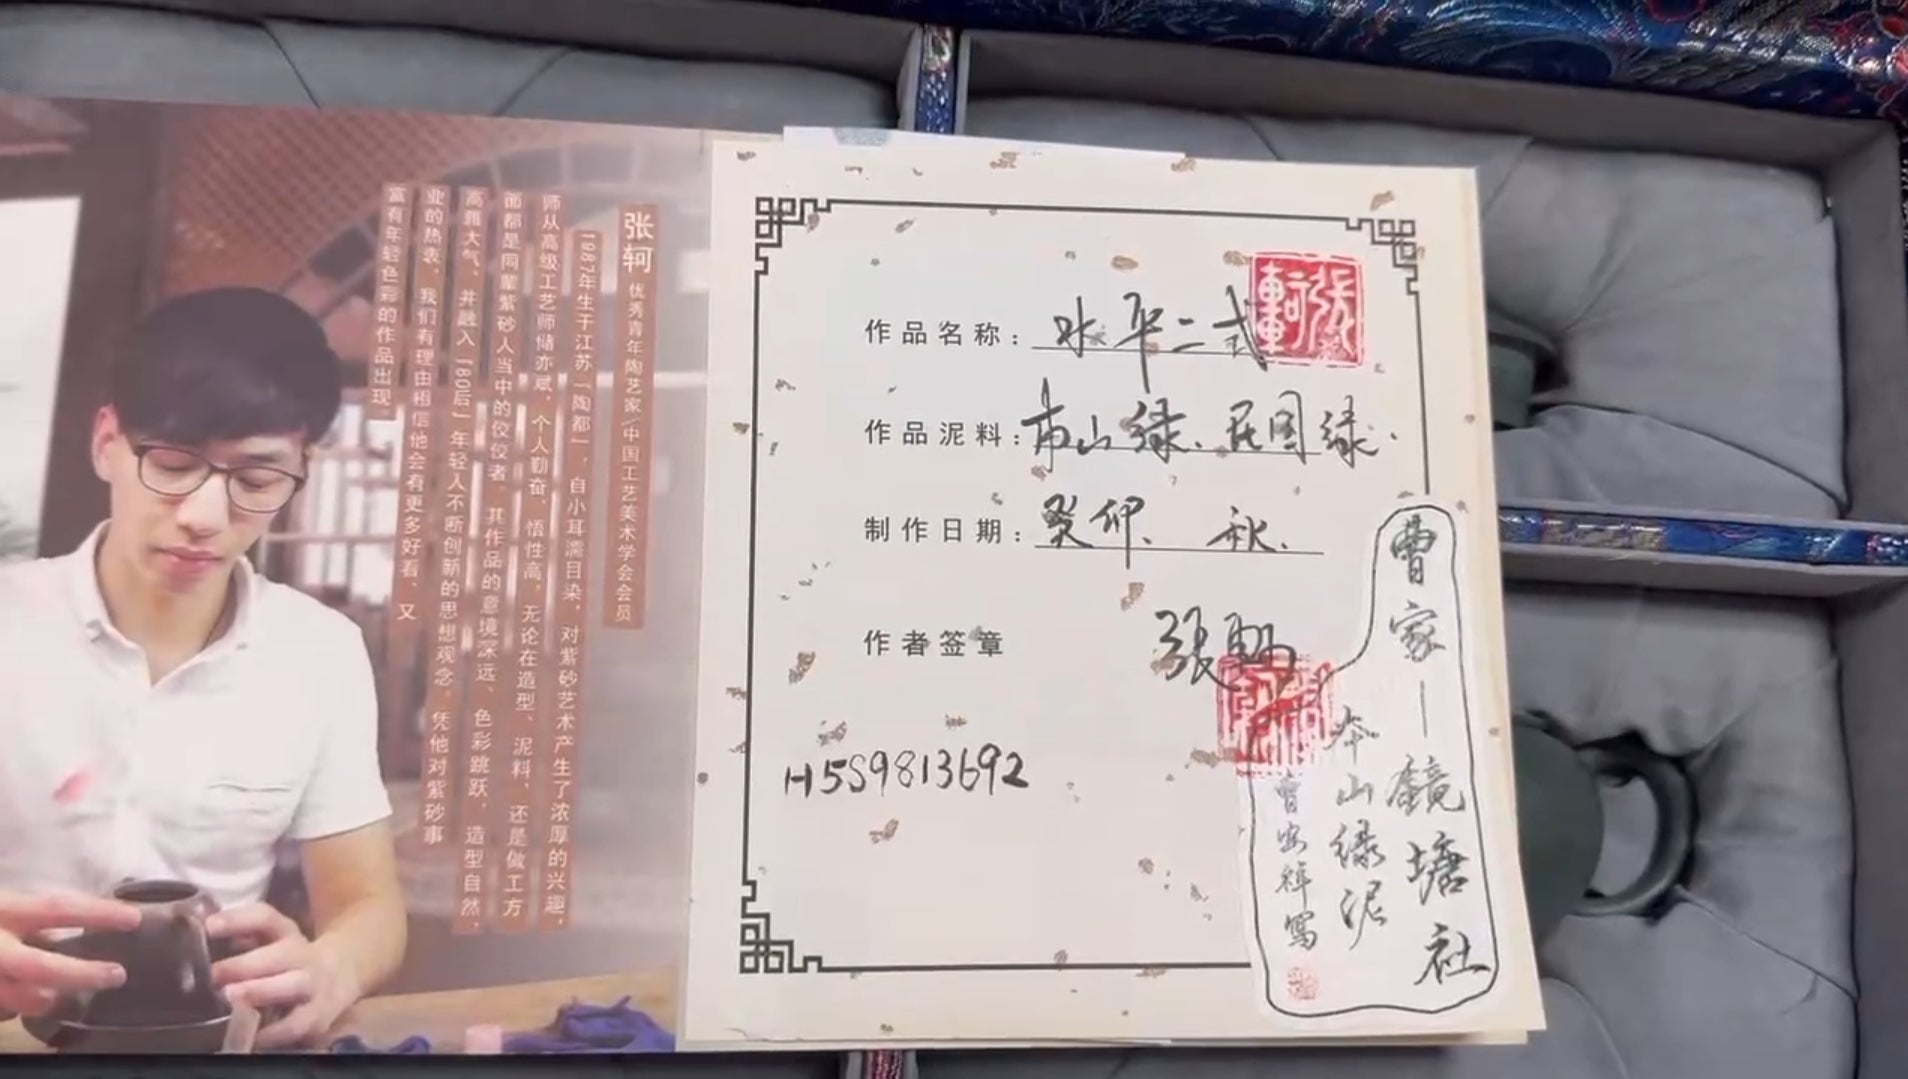 张轲 优秀青年陶艺家/中国工艺美术学会会员
1987年生于江苏「陶都」，自小耳濡目染，对紫砂艺术产生了浓厚的兴趣，
师从高级工艺师储亦斌，个人勤奋，悟性高，无论在造型、泥料，还是做工方
面都是同辈紫砂人当中的佼佼者。其作品的意境深远、色彩跳跃，造型自然，
高雅大气，并融入「80后」年轻人不断创新的思想观念。凭他对紫砂事
业的热衷，我们有理由相信他会有更多好看、又
富有年轻色彩的作品出现。
作品名称：水平二式
作品泥料：本山绿、民国绿.
制作日期：癸卯、秋.
作者签章 張軻
H5S9813692
曹家—鏡塘社
本山绿泥
曹安祥寫